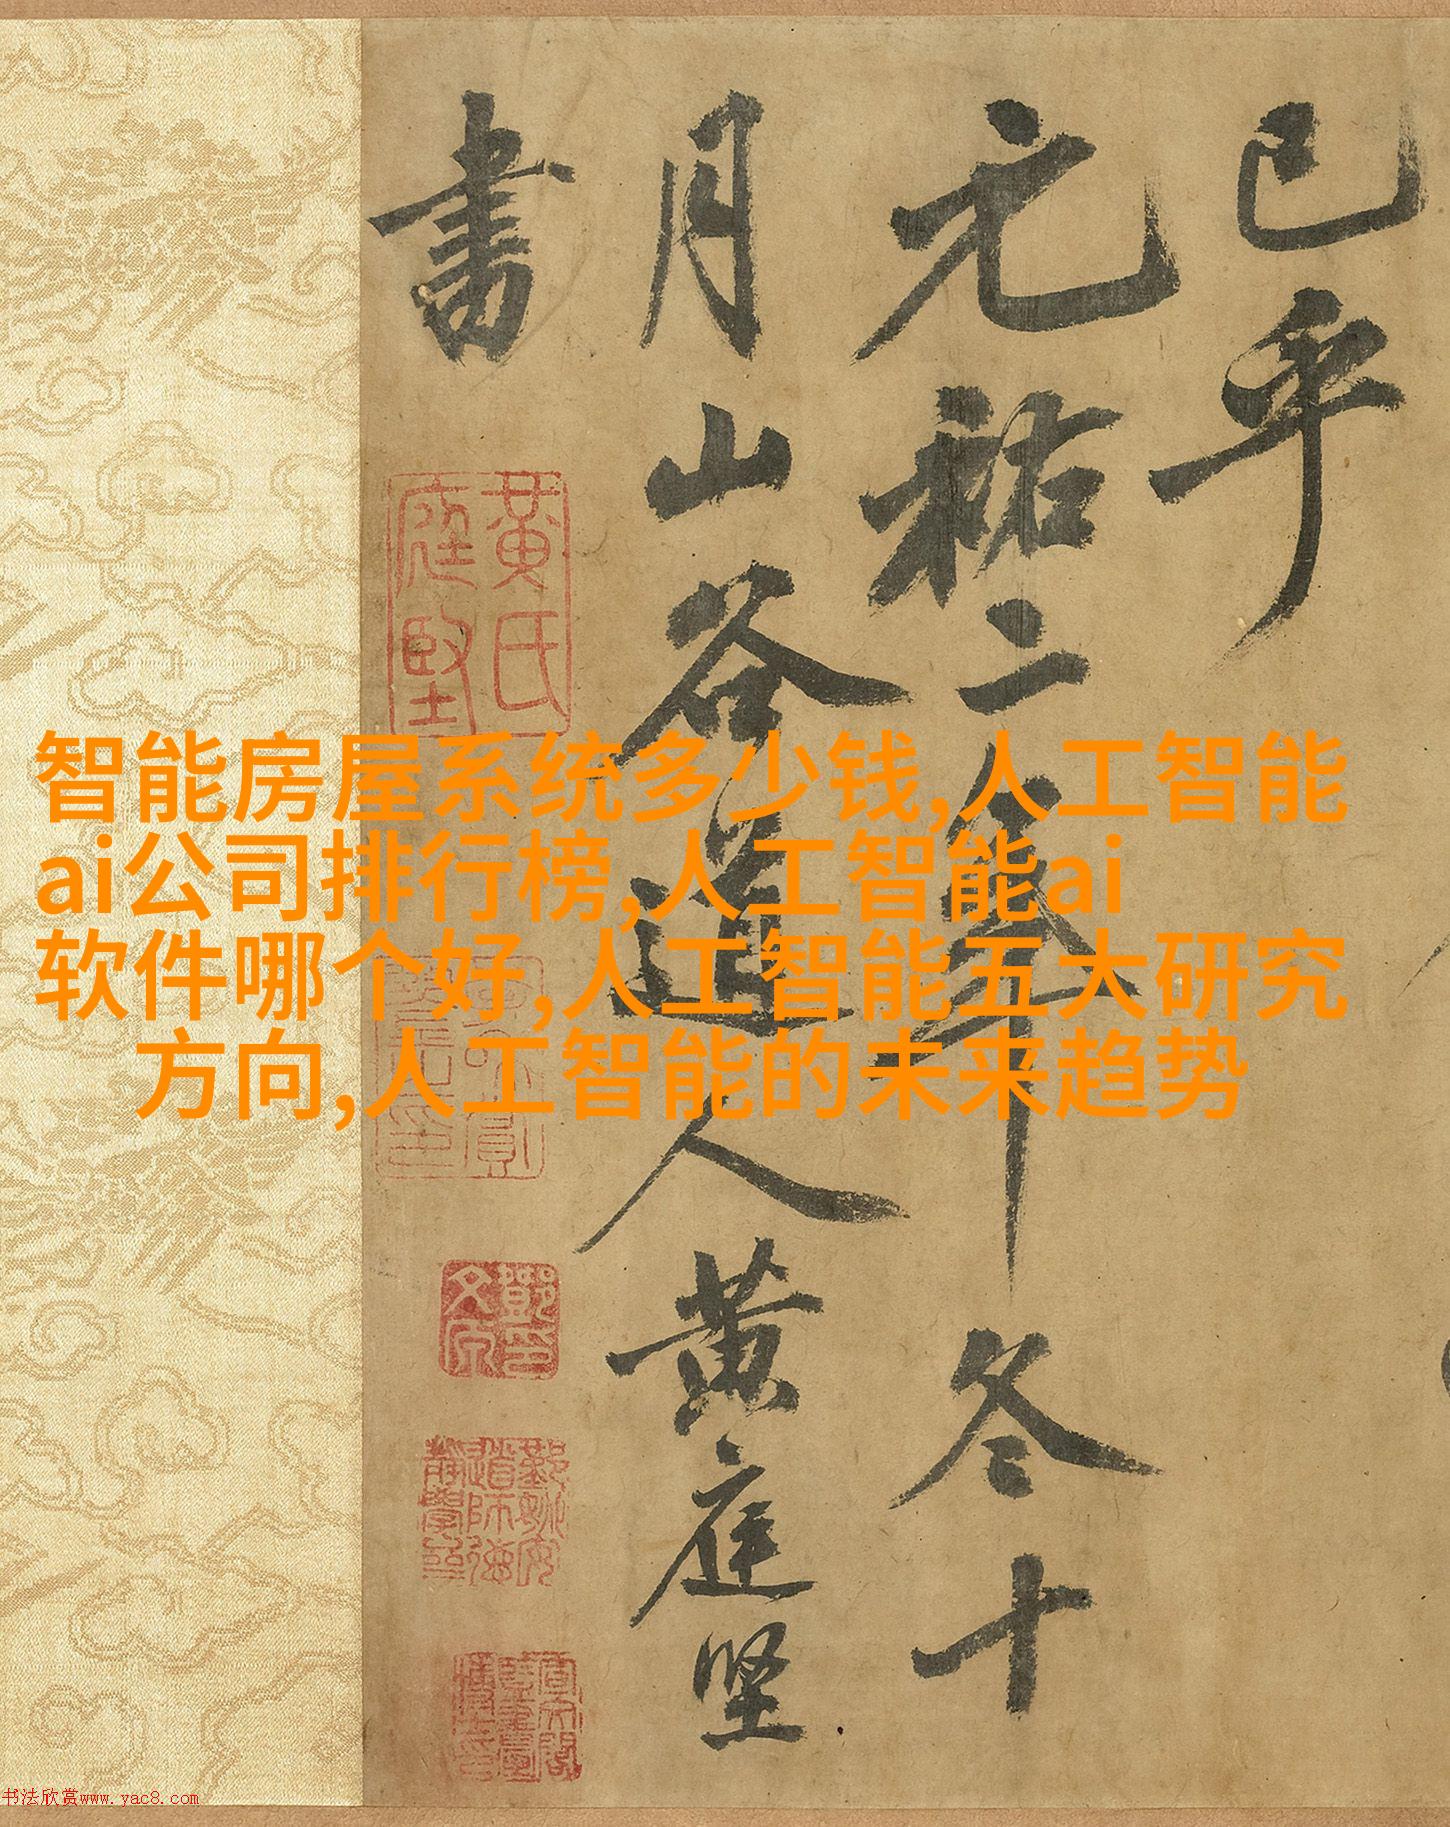 已乎
元祐二年冬十
月山谷道人黄庭坚
書
黃氏
庭堅
智能房屋系统多少钱,人工智能
ai公司排行榜,人工智能ai
软件哪个好,人工智能五大研究
方向,人工智能的未来趋势
书法欣赏www.yac8.com